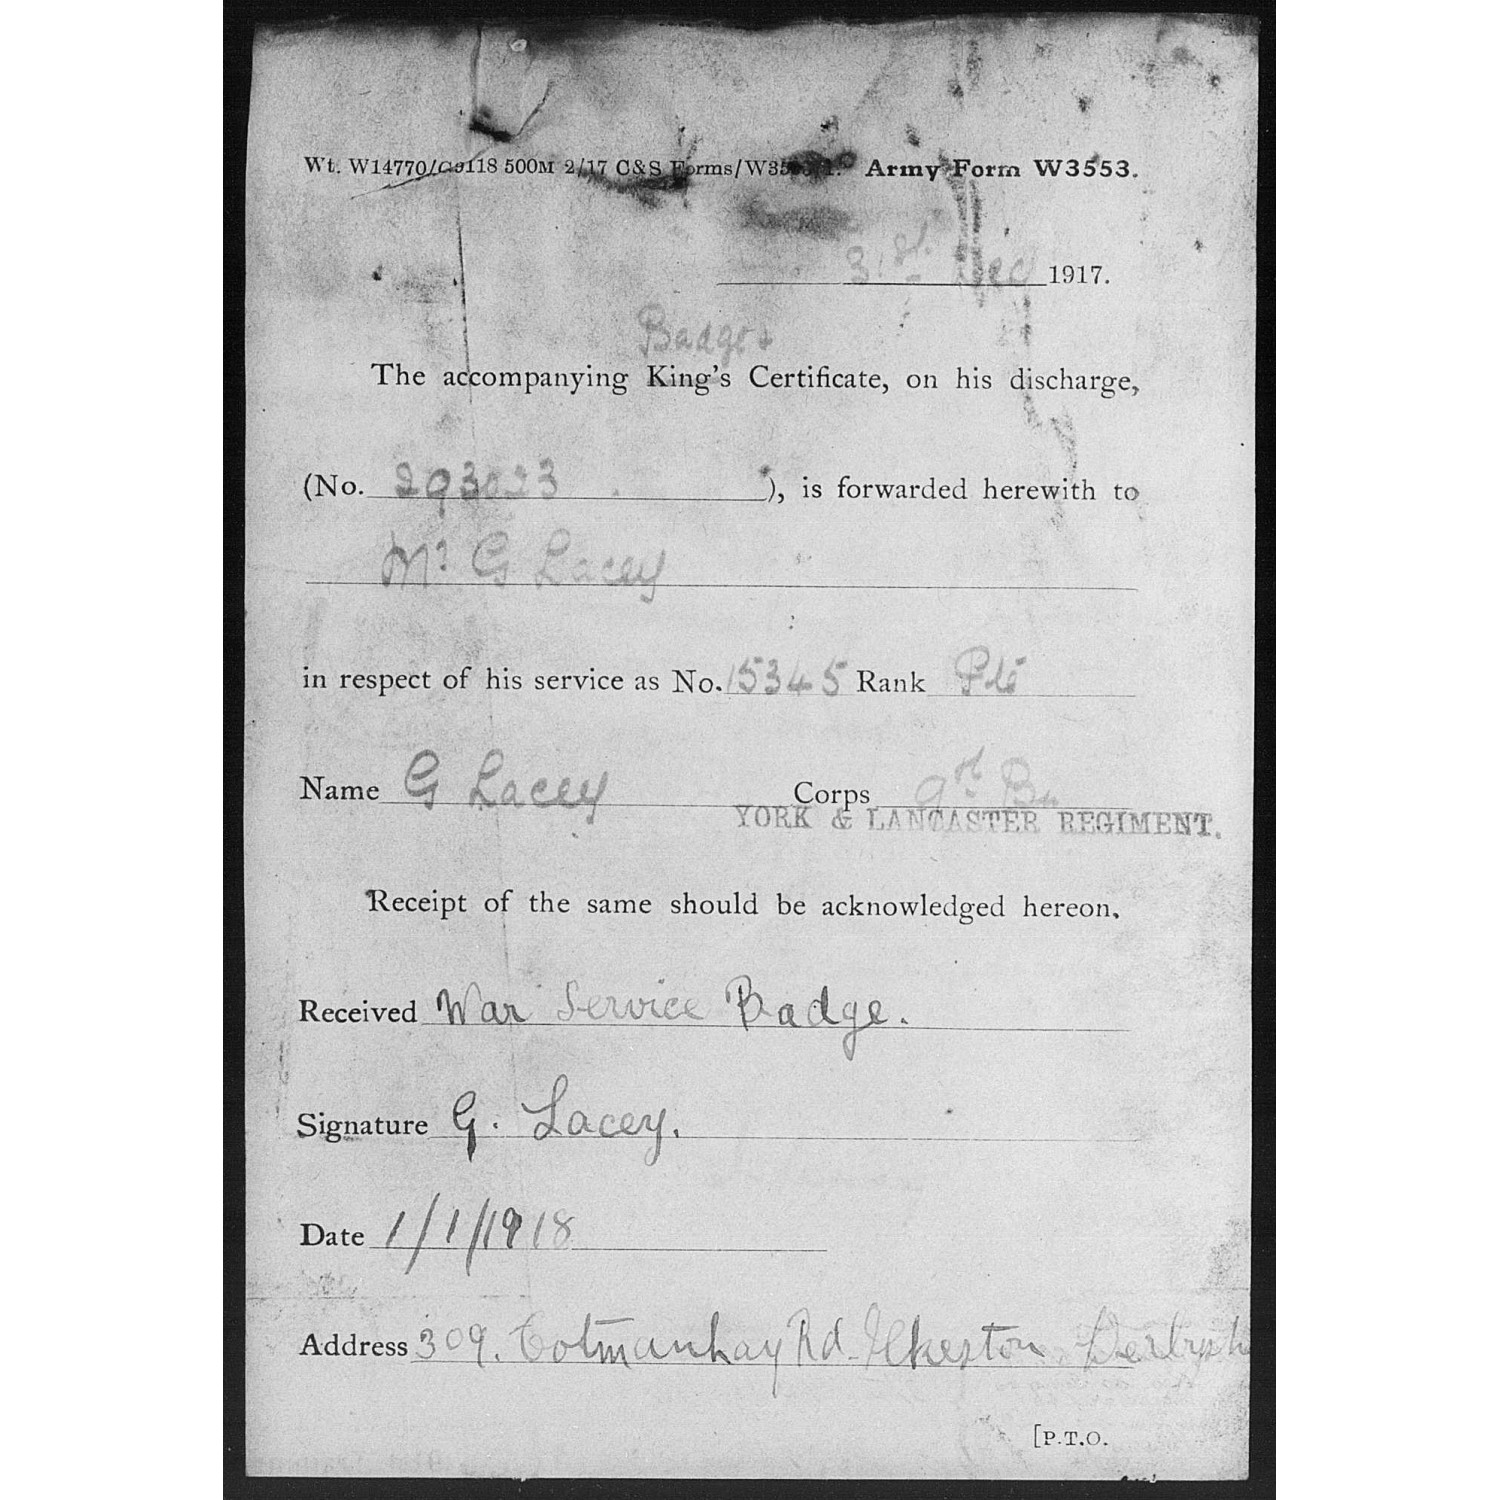 Wt. W14770/G9118 500M 2/17 C&S Forms/W35 Army Form W3553.
31st Dec 1917.
Badge &
The accompanying King's Certificate, on his discharge,
(No. 293023 ), is forwarded herewith to
Mr G Lacey
in respect of his service as No. 15345 Rank Pte
Name G Lacey Corps 9th Bn
YORK & LANCASTER REGIMENT.
Receipt of the same should be acknowledged hereon.
Received War Service Badge.
Signature G. Lacey.
Date 1/1/1918
Address 309. Cotmanhay Rd. Ilkeston Derbysh
[P.T.O.